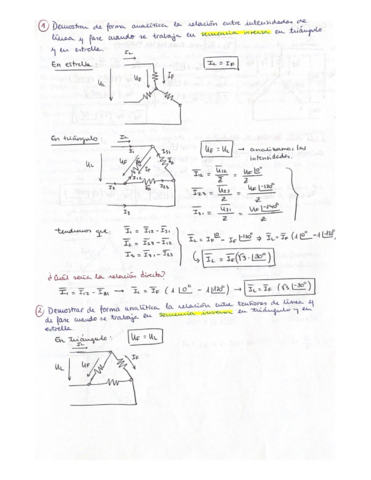 ① Demostrar de forma analítica la relación entre intensidades de
línea y fase cuando se trabaja en secuencia inversa en triángulo
y en estrella.
En estrella
IL
IL = IF
UL
UF
IF
En triángulo:
IL
UF = UL → analizamos las
intensidades.
I1
I31
UL
UF
IF
I12
I2
I23
I3
I12 = U12/Z = UF|0°/Z
I23 = U23/Z = UF|-120°/Z
I31 = U31/Z = UF|-240°/Z
tendremos que:
I1 = I12 - I31
I2 = I23 - I12
I3 = I31 - I23
IL = IF √3
¿Cuál sería la relación directa?
I1 = I12 - I31
② Demostrar de forma analítica la relación entre tensiones de línea y
de fase cuando se trabaja en secuencia inversa en triángulo y en
estrella.
En Triángulo:
UF = UL
IL
UL
UF
IF